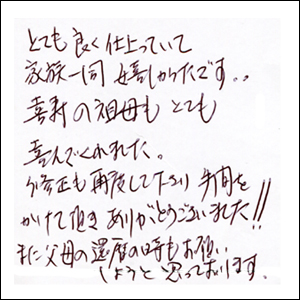 とても良く仕上っていて
家族一同 嬉しかったです。。
喜寿の祖母も とても
喜んでくれました。
修正も再度して下さり 手間を
かけて頂き ありがとうございました!!
また父母の還暦の時もお願い
しようと思っております。